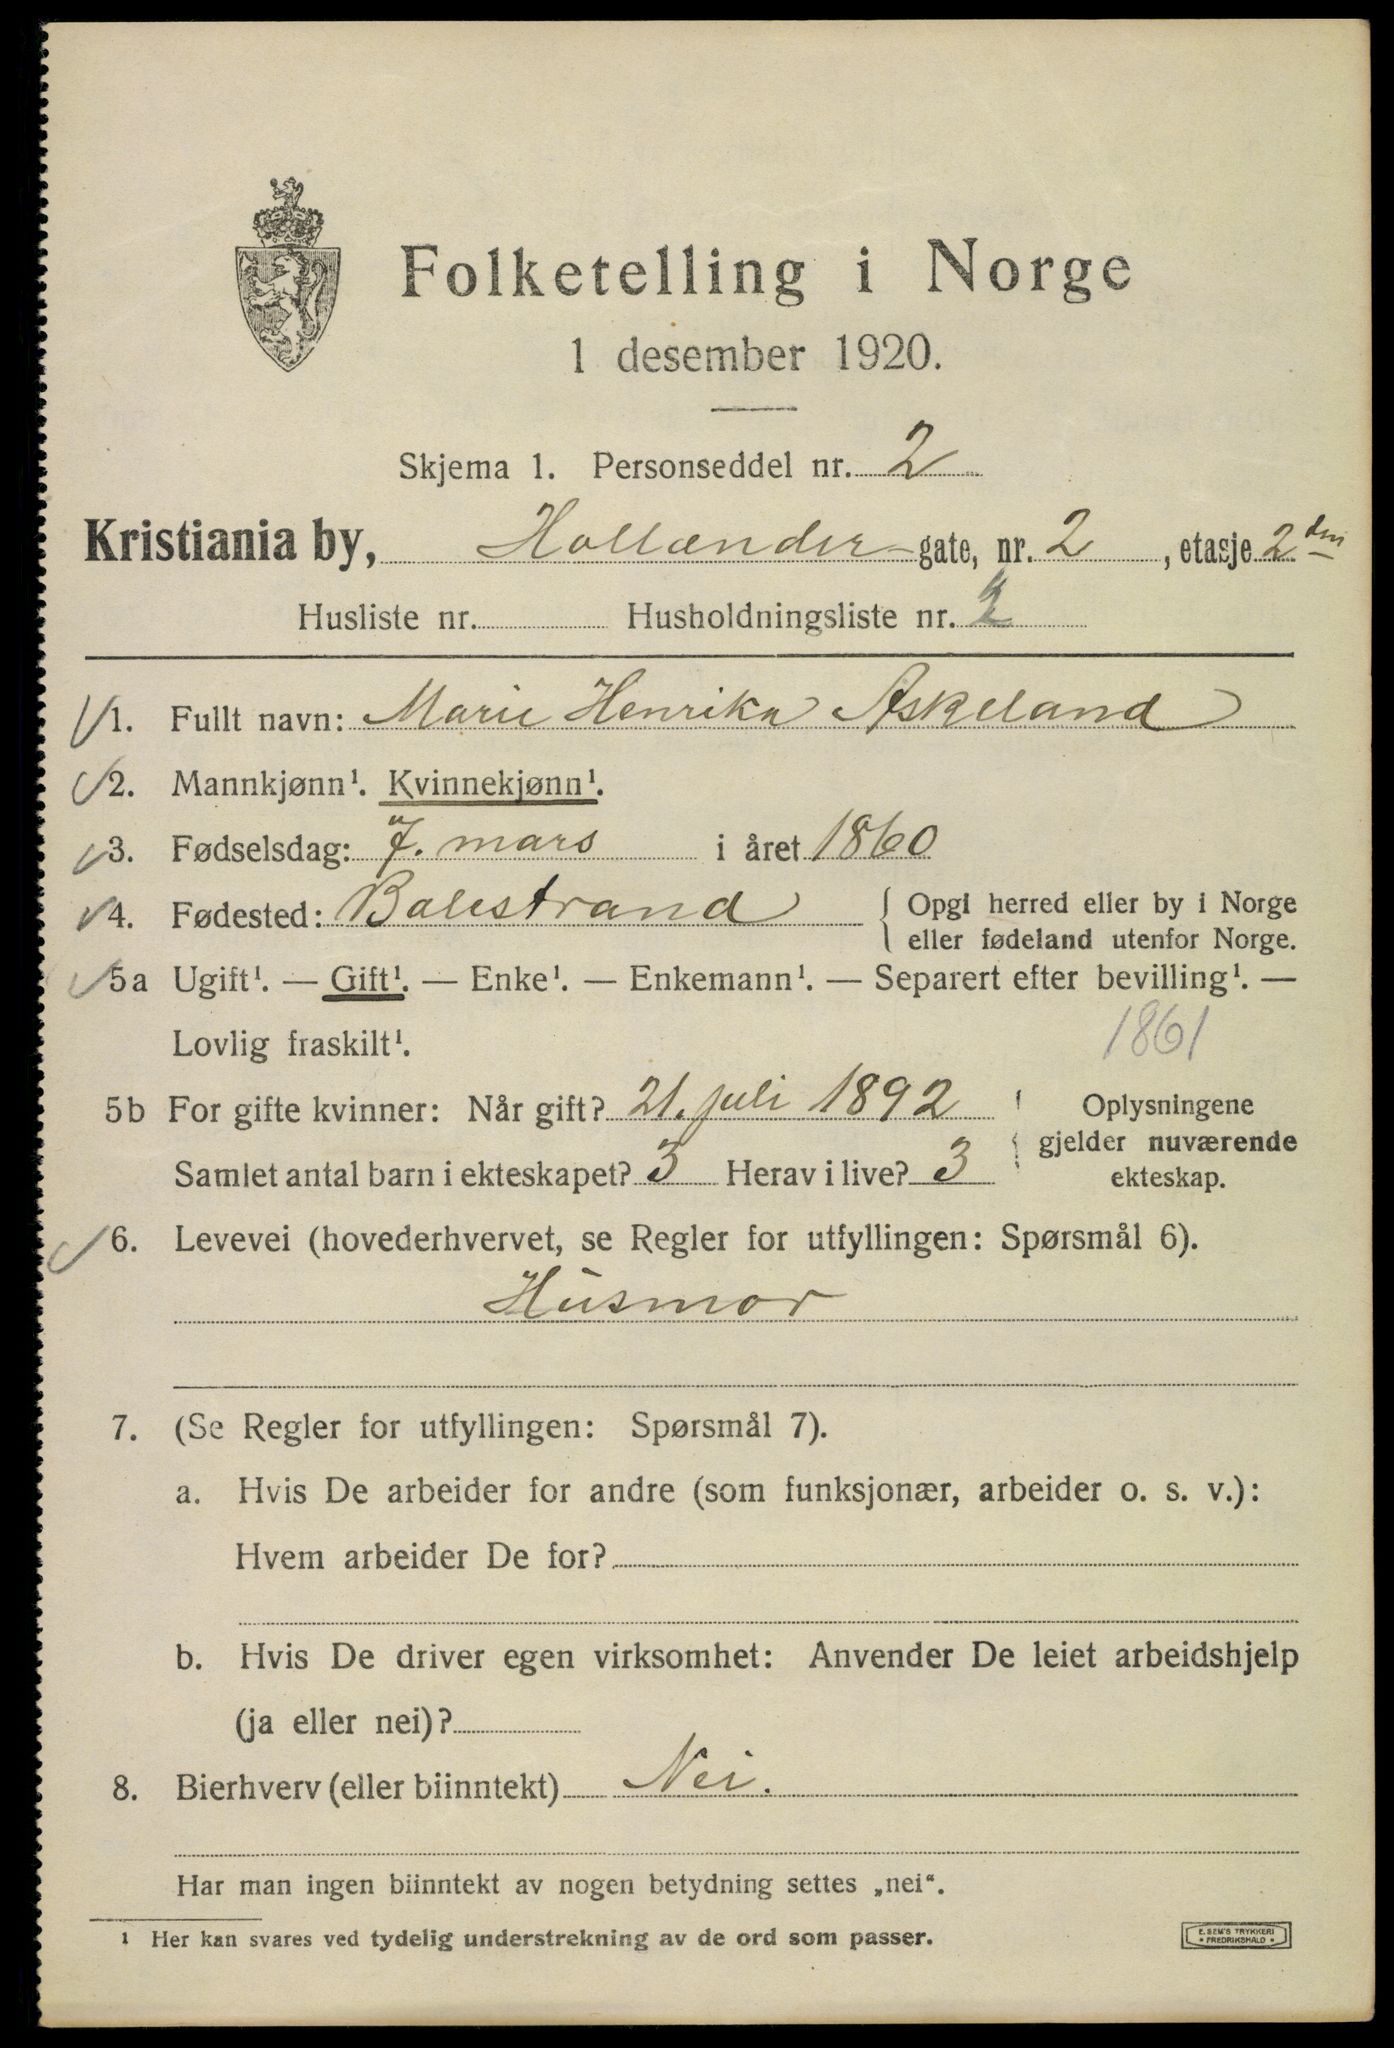 Folketelling i Norge
1 desember 1920.
Skjema 1. Personseddel nr. 2
Kristiania by, Hollænder-gate, nr. 2, etasje 2den
Husliste nr. Husholdningsliste nr. 2
1. Fullt navn: Marie Henrika Askeland
2. Mannkjønn¹. Kvinnekjønn¹.
3. Fødselsdag: 7. mars i året 1860
4. Fødested: Balestrand { Opgi herred eller by i Norge
eller fødeland utenfor Norge.
5a Ugift¹. — Gift¹. — Enke¹. — Enkemann¹. — Separert efter bevilling¹. —
Lovlig fraskilt¹. 1861
5b For gifte kvinner: Når gift? 21. juli 1892 Oplysningene
gjelder nuværende
Samlet antal barn i ekteskapet? 3 Herav i live? 3 ekteskap.
6. Levevei (hovederhvervet, se Regler for utfyllingen: Spørsmål 6).
Husmor
7. (Se Regler for utfyllingen: Spørsmål 7).
a. Hvis De arbeider for andre (som funksjonær, arbeider o. s. v.):
Hvem arbeider De for?
b. Hvis De driver egen virksomhet: Anvender De leiet arbeidshjelp
(ja eller nei)?
8. Bierhverv (eller biinntekt) Nei.
Har man ingen biinntekt av nogen betydning settes „nei“.
¹ Her kan svares ved tydelig understrekning av de ord som passer.
E. SEM'S TRYKKERI
* FREDRIKSHALD *